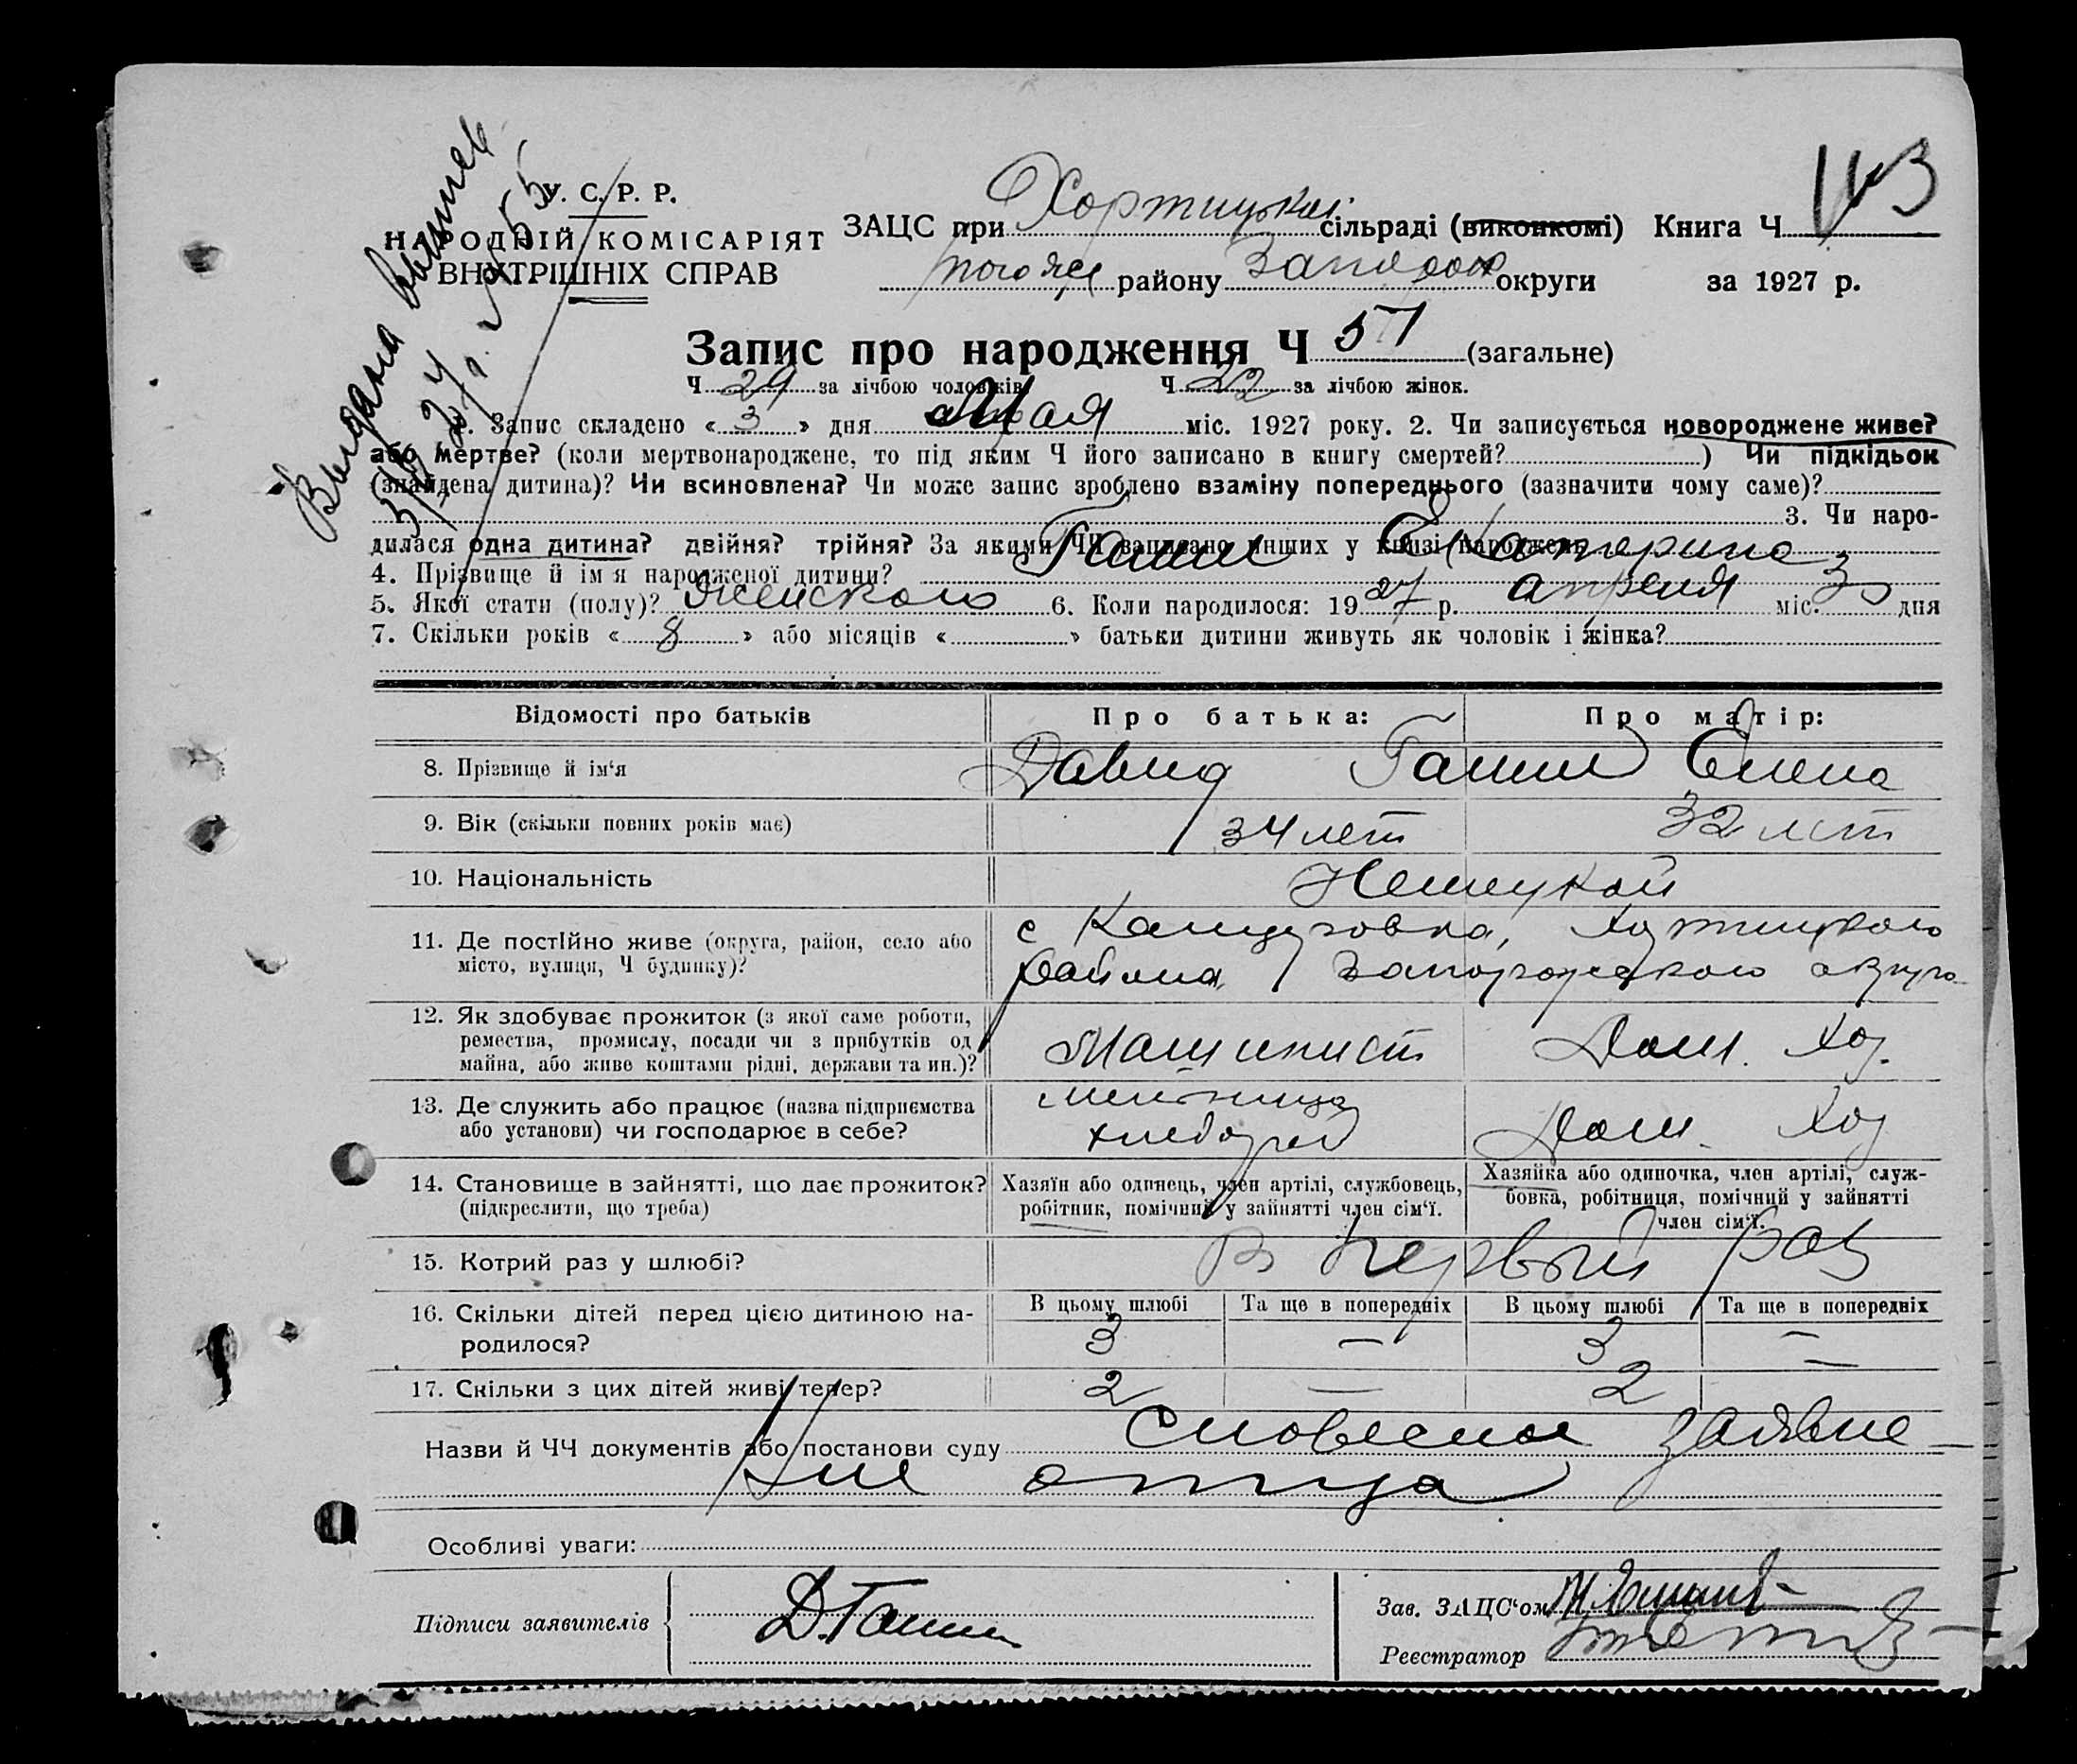 Выдана выпись
У. С. Р. Р.
НАРОДНІЙ КОМІСАРІЯТ
ВНУТРІШНІХ СПРАВ
ЗАЦС при Хортицькій сільраді (виконкомі) Книга Ч
того же району Запорож округи за 1927 р.
Запис про народження Ч 51 (загальне)
Ч 29 за лічбою чоловіків Ч 22 за лічбою жінок.
1. Запис складено « 3 » дня Мая міс. 1927 року. 2. Чи записується новороджене живе?
або мертве? (коли мертвонароджене, то під яким Ч його записано в книгу смертей? ) Чи підкідьок
(знайдена дитина)? Чи всиновлена? Чи може запис зроблено взаміну попереднього (зазначити чому саме)?
3. Чи наро-
дилася одна дитина? двійня? трійня? За якими ЧЧ записано инших у книзі народжень
4. Прізвище й ім'я народженої дитини? Екатерина
5. Якої стати (полу)? Женского 6. Коли народилося: 1927 р. апреля міс. 3 дня
7. Скільки років « 8 » або місяців « » батьки дитини живуть як чоловік і жінка?
Відомості про батьків Про батька: Про матір:
8. Прізвище й ім'я Давид Елена
9. Вік (скільки повних років має) 34 лет 32 лет
10. Національність Немецкой
11. Де постійно живе (округа, район, село або
місто, вулиця, Ч будинку)?
с Канцеровка, Хортицкого
района, Запорожского округа
12. Як здобуває прожиток (з якої саме роботи,
ремества, промислу, посади чи з прибутків од
майна, або живе коштами рідні, держави та ин.)?
Машинист Дом. Хоз.
13. Де служить або працює (назва підприємства
або установи) чи господарює в себе?
мельница Дом. Хоз
14. Становище в зайнятті, що дає прожиток?
(підкреслити, що треба)
Хазяїн або одинець, член артілі, службовець,
робітник, помічний у зайнятті член сім'ї.
Хазяйка або одиночка, член артілі, служ-
бовка, робітниця, помічний у зайнятті
член сім'ї.
15. Котрий раз у шлюбі? В Первый раз
16. Скільки дітей перед цією дитиною на-
родилося?
В цьому шлюбі Та ще в попередніх В цьому шлюбі Та ще в попередніх
3 — 3 —
17. Скільки з цих дітей живі тепер? 2 — 2
Назви й ЧЧ документів або постанови суду Словесное заявле-
ние отца
Особливі уваги:
Підписи заявителів
Зав. ЗАЦС'ом
Реєстратор